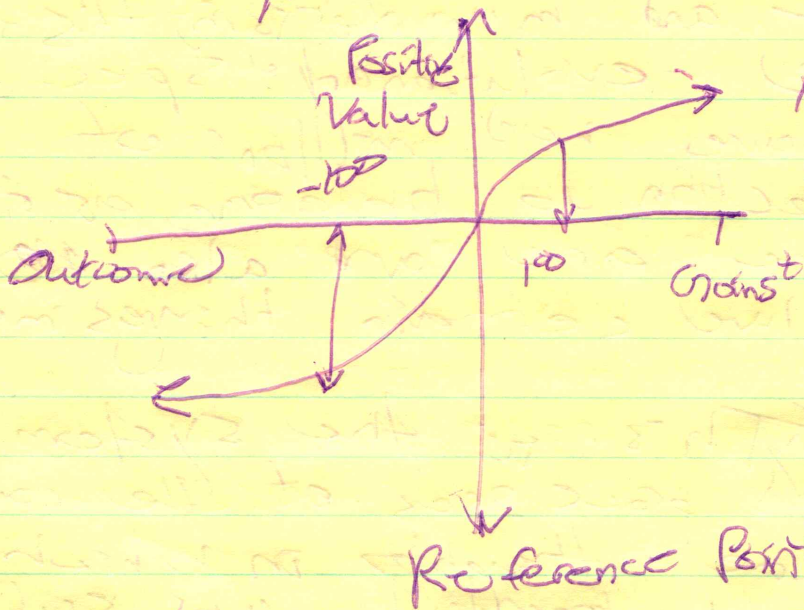 Positive
Value
-100
Outcome
100
Gains+
Reference Point